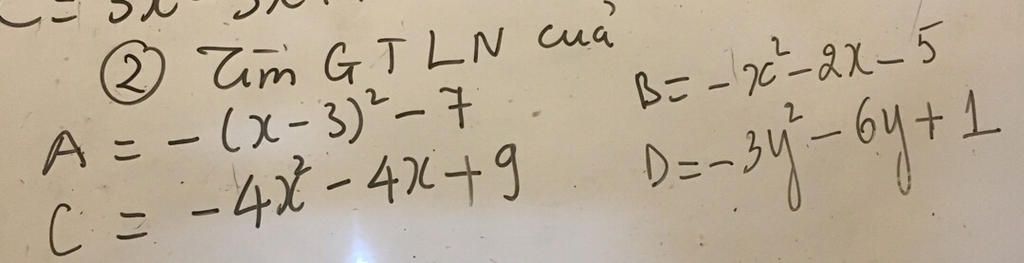 C = 3x
② Tìm GTLN cuả
A = -(x-3)² - 7
B = -x² - 2x - 5
C = -4x² - 4x + 9
D = -3y² - 6y + 1